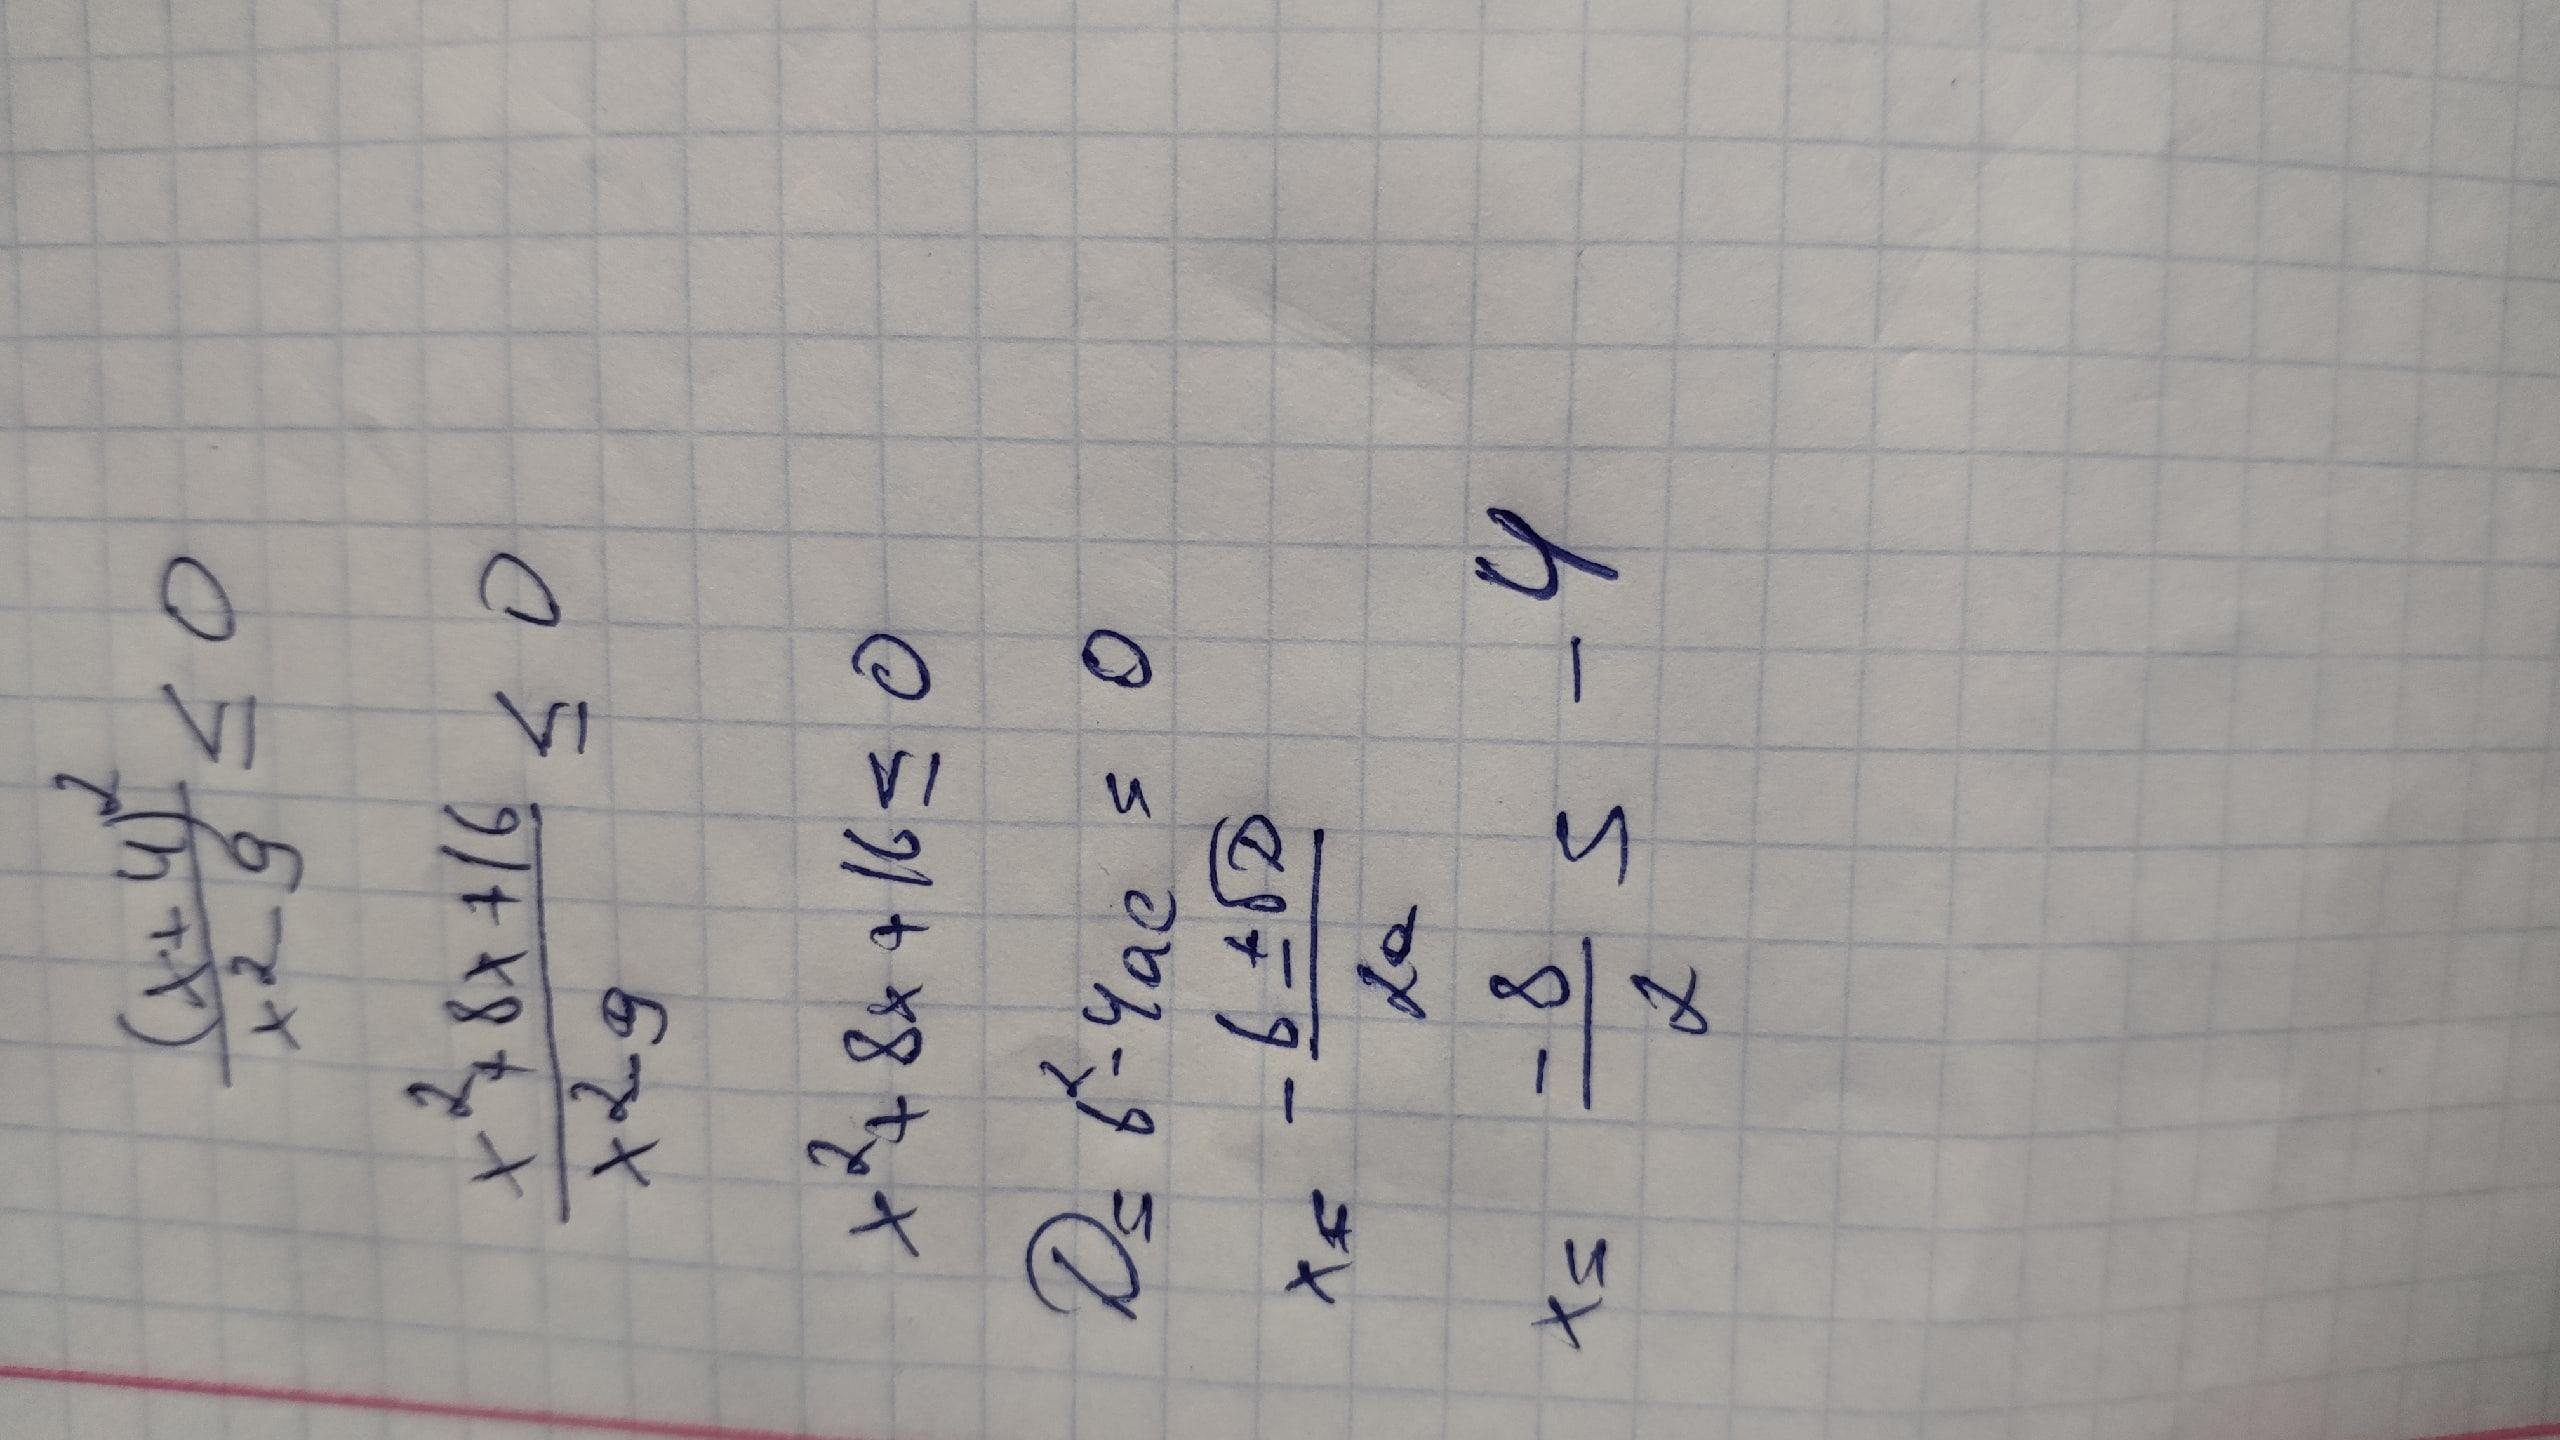 (x+4)²/x²-9 ≤ 0
x²+8x+16/x²-9 ≤ 0
x²+8x+16 ≤ 0
D = b²-4ac = 0
x = -b±√D/2a
x = -8/2 = -4